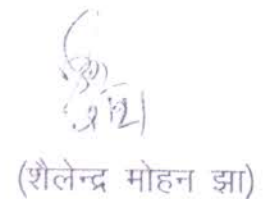 (शैलेन्द्र मोहन झा)